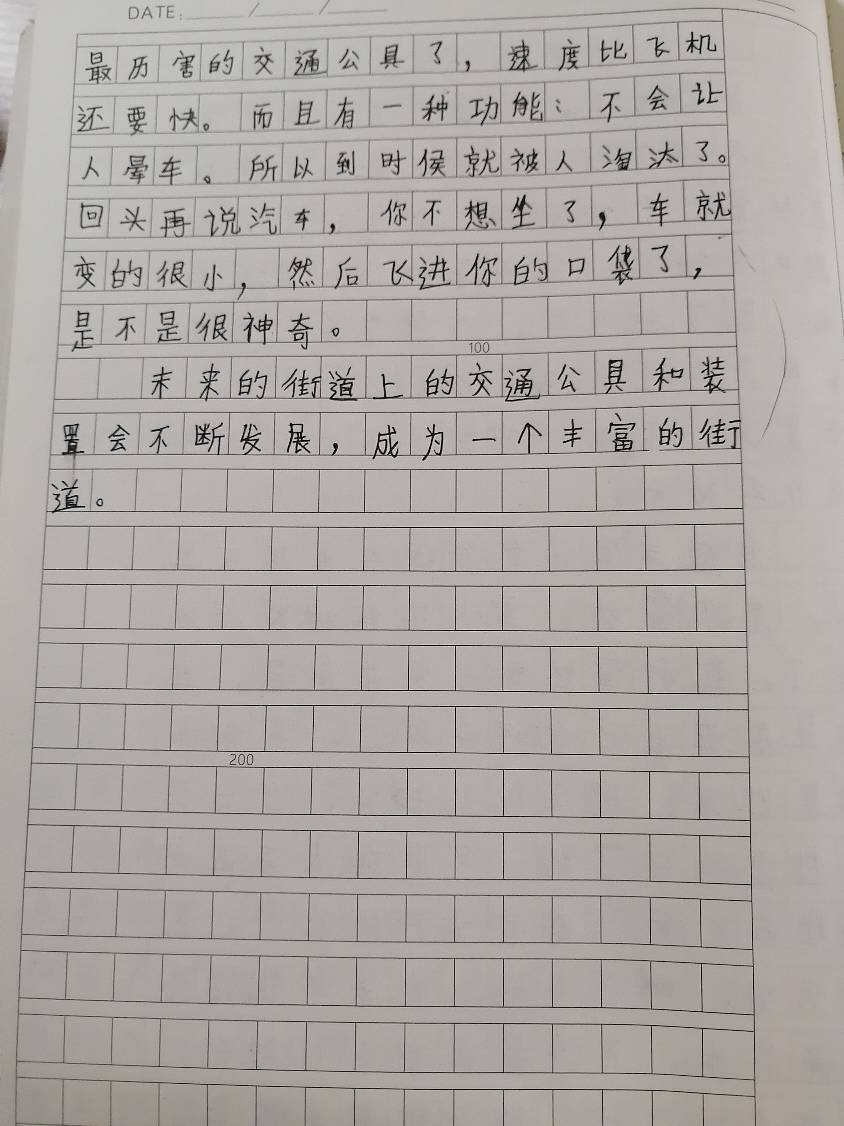 DATE: / /
最历害的交通公具了，速度比飞机
还要快。而且有一种功能：不会让
人晕车。所以到时侯就被人淘汰了。
回头再说汽车，你不想坐了，车就
变的很小，然后飞进你的口袋了，
是不是很神奇。
100
未来的街道上的交通公具和装
置会不断发展，成为一个丰富的街
道。
200